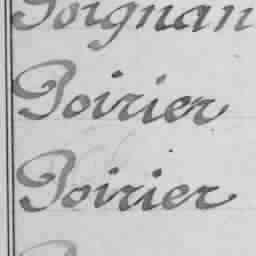 Poignan
Poirier
Poirier